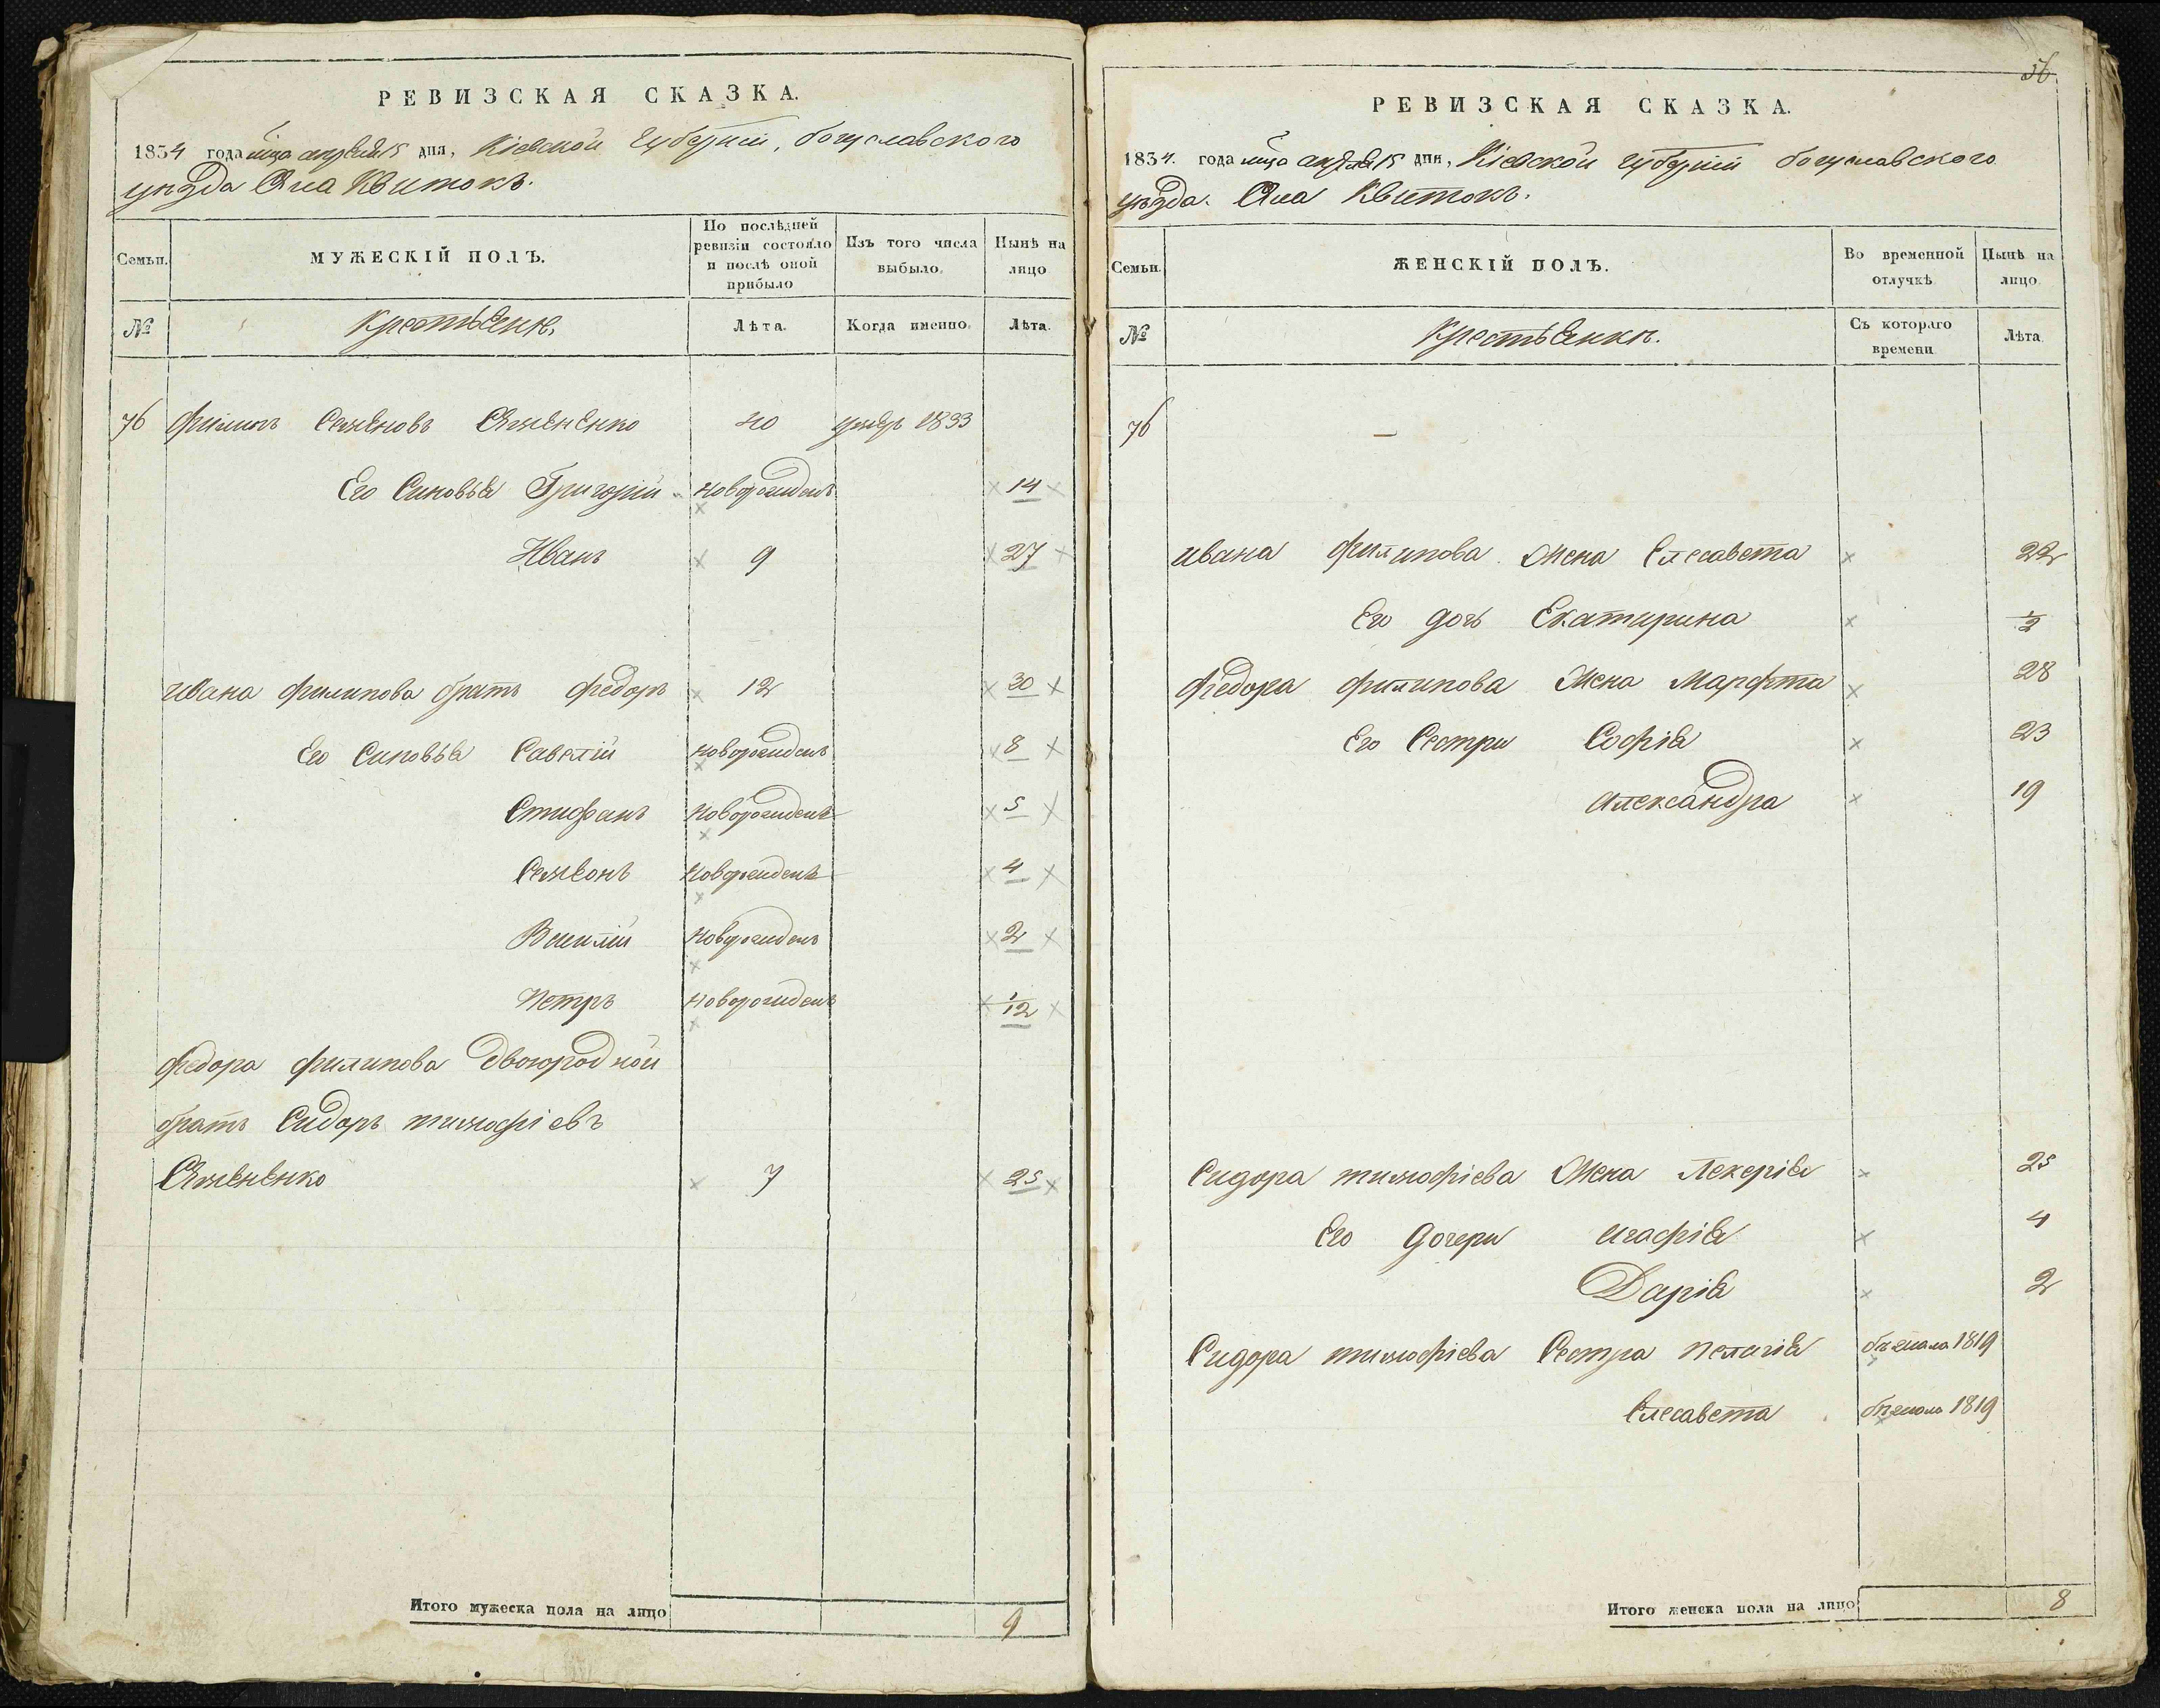 РЕВИЗСКАЯ СКАЗКА.
1834 года мца апреля 15 дня, Кіевской губерніи, богуславского
уезда Села Квитокъ.
Семьи.
МУЖЕСКІЙ ПОЛЪ.
По послѣдней ревизіи состояло и послѣ оной прибыло
Изъ того числа выбыло.
Нынѣ на лицо
№
Крестьяне.
Лѣта.
Когда именно.
Лѣта.
76 Филипъ Семеновъ Семененко 40 умер 1833
Его Синовья Григорій новорожденъ 14
Иванъ 9 27
Ивана Филипова братъ Федоръ 12 30
Его Синовья Савелій новорожденъ 8
Стифанъ новорожденъ 5
Семеонъ новорожденъ 4
новорожденъ 2
Петръ новорожденъ 1/12
Федора Филипова двоюродной
братъ Сидоръ тимофіевъ
Семененко 7 25
Итого мужеска пола на лицо 9
56.
РЕВИЗСКАЯ СКАЗКА.
1834. года мца апреля 15 дня, Кіевской губерніи богуславского
уезда. Села Квитокъ.
Семьи.
ЖЕНСКІЙ ПОЛЪ.
Во временной отлучкѣ
Нынѣ на лицо.
№
Крестьянки.
Съ котораго времени
Лѣта
76 —
Ивана Филипова Жена Елесавета 22
Его дочь Екатирина 1/2
Федора Филипова Жена Марфта 28
Его Сестри Софія 23
Александра 19
Сидора тимофіева Жена Лекерія 25
Его дочери Агафія 4
Дарія 2
Сидора тимофіева Сестра Пелагія бежала 1819
Елесавета бежала 1819
Итого женска пола на лицо 8